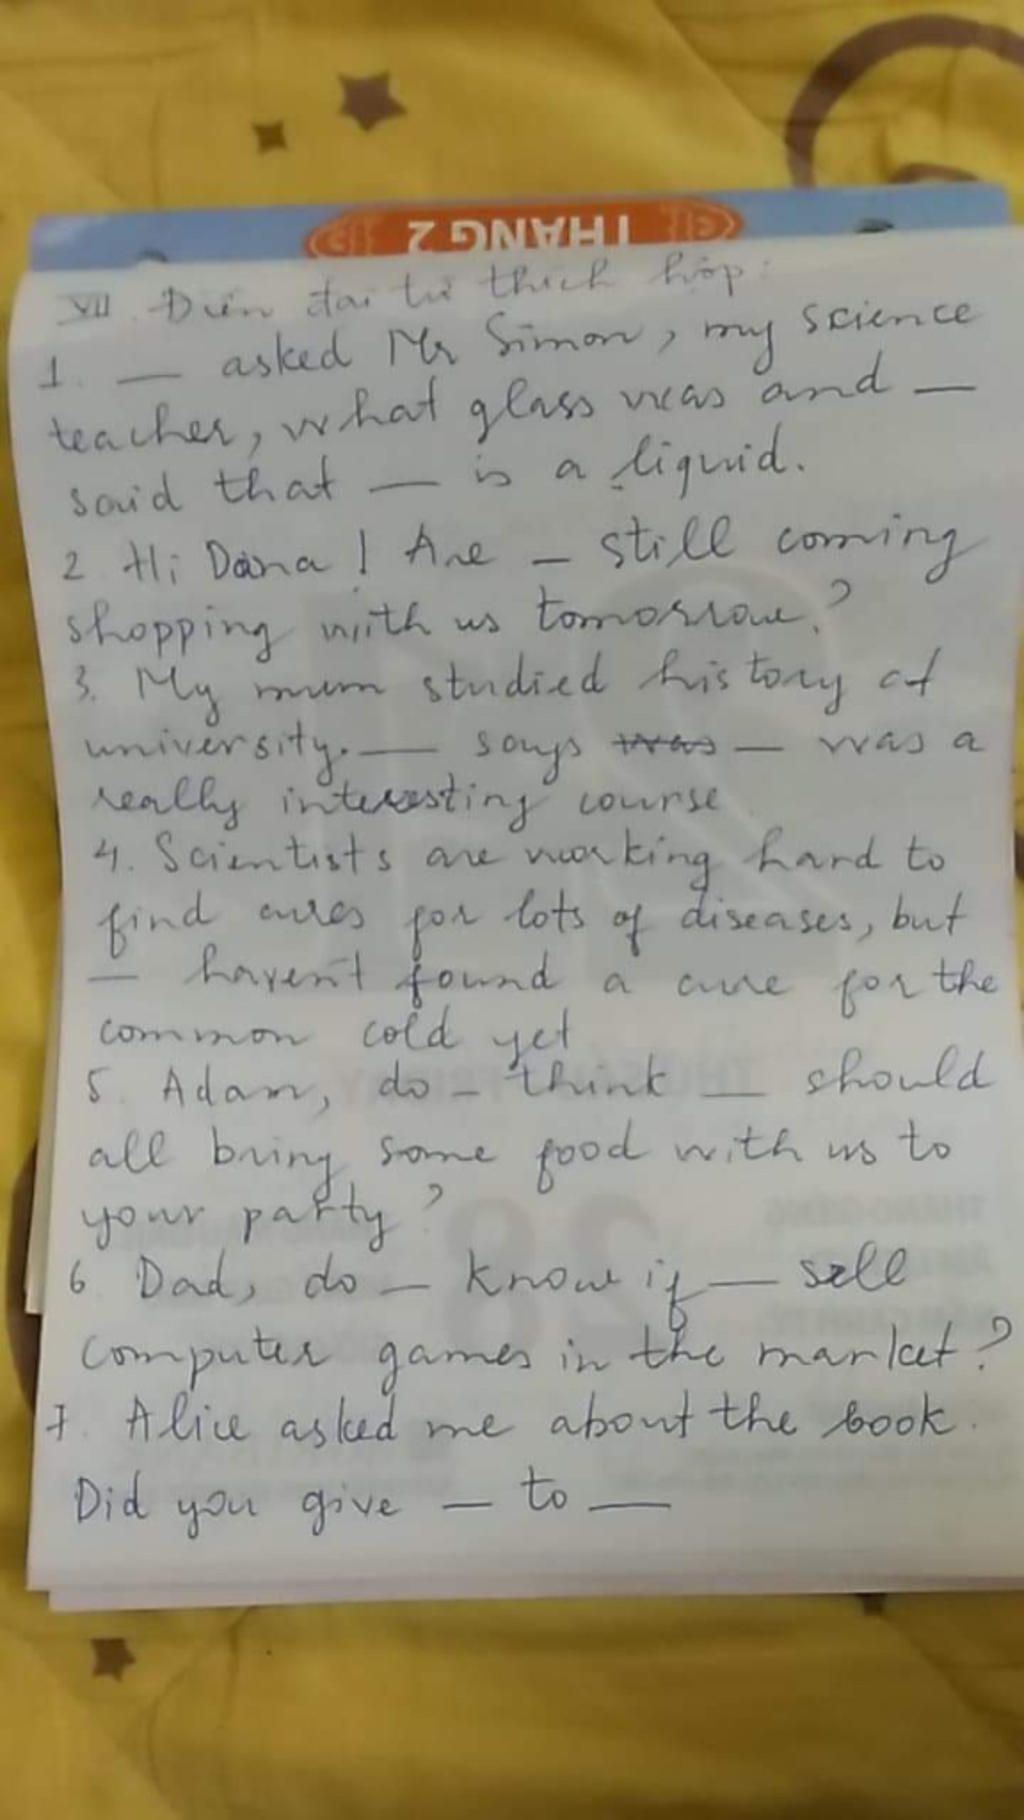 THANG 2
VII. Điền đại từ thích hợp:
1. — asked Mr Simon, my science
teacher, what glass was and —
said that — is a liquid.
2. Hi Dana! Are — still coming
shopping with us tomorrow?
3. My mum studied history at
university. — says was — was a
really interesting course
4. Scientists are working hard to
find cures for lots of diseases, but
— haven't found a cure for the
common cold yet
5. Adam, do — think — should
all bring some food with us to
your party?
6 Dad, do — know if — sell
computer games in the market?
7. Alice asked me about the book.
Did you give — to —